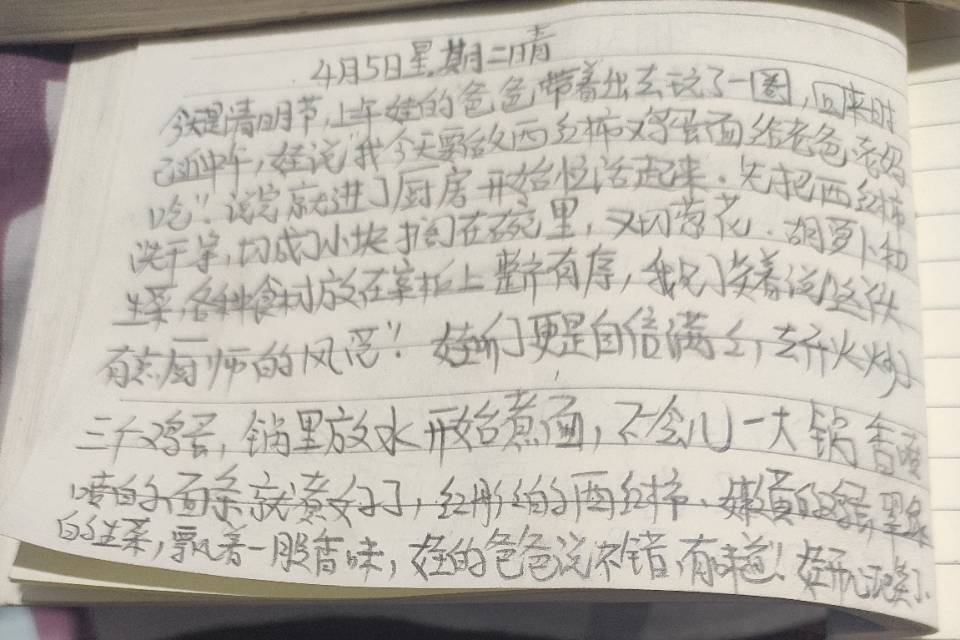 4月5日星期二晴
今天是清明节，上午娃的爸爸带着出去玩了一圈，回来时
已近中午，娃说"我今天要做西红柿鸡蛋面给老爸老妈
吃"。说完就进了厨房开始忙活起来。先把西红柿
洗干净，切成小块 在碗里，又切葱花、胡萝卜和
生菜，各种食材放在案板上整齐有序，我见了笑着说
有点厨师的风范"！娃听了更是自信满々，去开火炒
三个鸡蛋，锅里放水开始煮面，不会儿一大锅香喷
喷的面条就煮好了，红彤红的西红柿、嫩黄的鸡蛋 翠绿
的生菜，飘着一股香味，娃的爸爸说不错，有味道！娃开心